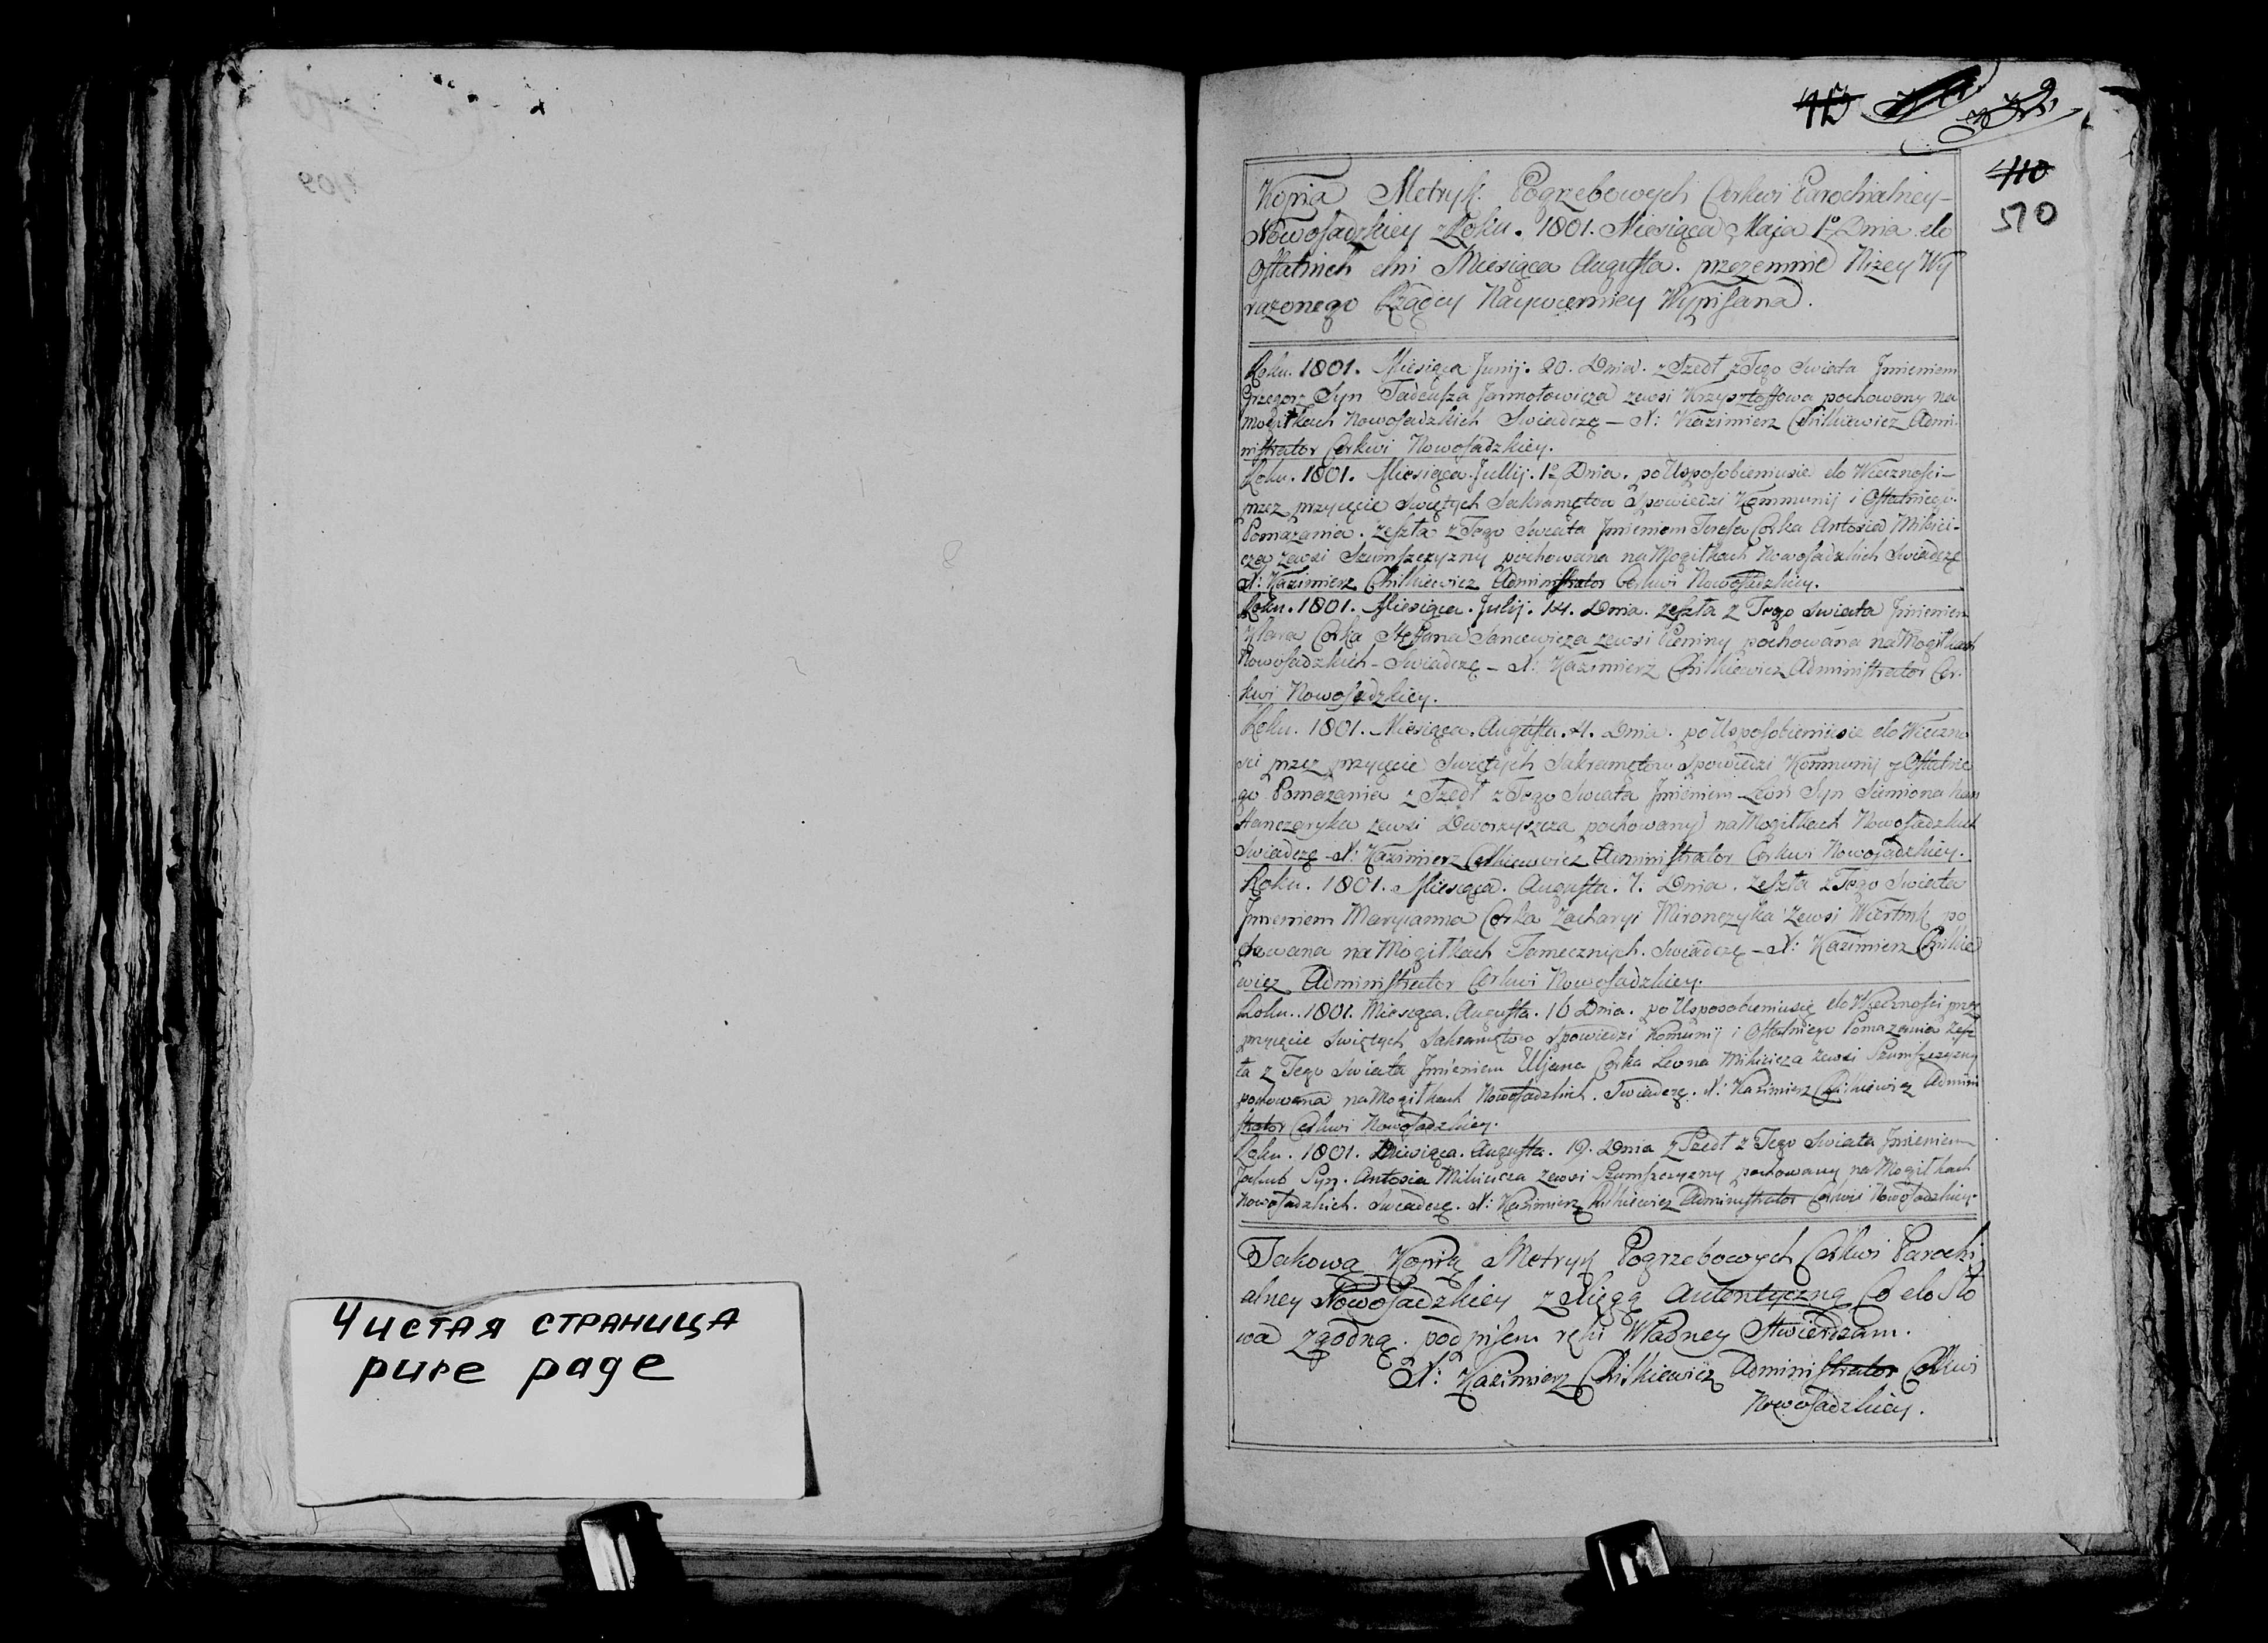 Чистая страница
pure page
110
570
Kopia Metryk Pogrzebowych Cerkwi Parochialney
Nowosadzkiey z Roku. 1801. Miesiąca Maja 1º Dnia do
Ostatnich dni Miesiąca Augusta. przezemnie Niżey Wy
rażonego Rządcy Naywierniey Wypisana.
Roku. 1801. Miesiąca Junij. 20. Dnia. z Szedł z Tego Swiata Jmieniem
Grzegorz Syn Tadeusza Jarmołowicza zewsi Krzysztoffowa pochowany na
mogiłkach Nowosadzkich Swiadczę – X: Kazimierz Chilkiewicz Admi-
nistrator Cerkwi Nowosadzkiey.
Roku. 1801. Miesiąca. Jullij. 1º Dnia. po Usposobieniusie do Wiecznosci
przez przyięcie Swiętych Sakramętow Spowiedzi Kommunij i Ostatniego
Pomazania. Zeszła z Tego Swiata Jmieniem Teresa Corka Antosia Mikici-
cza zewsi Szumszczyzny pochowana na Mogiłkach Nowosadzkich Swiadczę
X: Kazimierz Chilkiewicz Administrator Cerkwi Nowosadzkiey.
Roku. 1801. Miesiąca. Julij. 14. Dnia. zeszła z Tego Swiata Jmieniem
Klara Corka Steffana Sancewicza zewsi Pieniny pochowana na Mogiłkach
Nowosadzkich – Swiadczę – X: Kazimierz Chilkiewicz Administrator Cer-
kwi Nowosadzkiey.
Roku. 1801. Miesiąca. Augusta. 4. Dnia. po Usposobieniusie do Wieczno
sci przez przyięcie Swiętych Sakramętow Spowiedzi Kommunij y Ostatnie
go Pomazania z Szedł z Tego Swiata Jmieniem Leon Syn Siemiona
Hanczaryka zewsi Dworzyszcza pochowany na Mogiłkach Nowosadzkich
Swiadczę – X: Kazimierz Chilkiewicz Administrator Cerkwi Nowosadzkiey.
Roku. 1801. Miesiąca. Augusta. 7. Dnia. Zeszła z Tego Swiata
Jmieniem Maryianna Corka Zacharyi Mironczyka Zewsi po
chowana na Mogiłkach Tamecznych. Swiadczę – X: Kazimierz Chilkie
wicz Administrator Cerkwi Nowosadzkiey.
Roku. 1801. Miesiąca. Augusta. 16 Dnia. po Usposobieniusię do Wiecznosci przez
przyięcie Swiętych Sakramętow Spowiedzi Komunij i Ostatniego Pomazania Zesz
ła z Tego Swiata Jmieniem Uljana Corka Leona Mikicicza zewsi Szumszczyzny
pochowana na Mogiłkach Nowosadzkich. Swiadczę. X: Kazimierz Chilkiewicz Admini
strator Cerkwi Nowosadzkiey.
Roku. 1801. Miesiąca. Augusta. 19. Dnia z Szedł z Tego Swiata Jmieniem
Jakub Syn. Antosia Mikicicza Zewsi Szumszczyzny pochowany na Mogiłkach
Nowosadzkich. Swiadczę. X: Kazimierz Chilkiewicz Administrator Cerkwi Nowosadzkiey.
Takową Kopią Metryk Pogrzebowych Cerkwi Parochi
alney Nowosadzkiey z Xięgą Autentyczną Co do Sło
wa zgodną. podpisem ręki Własney Stwierdzam.
X: Kazimierz Chilkiewicz Administrator Cerkwi
Nowosadzkiey.